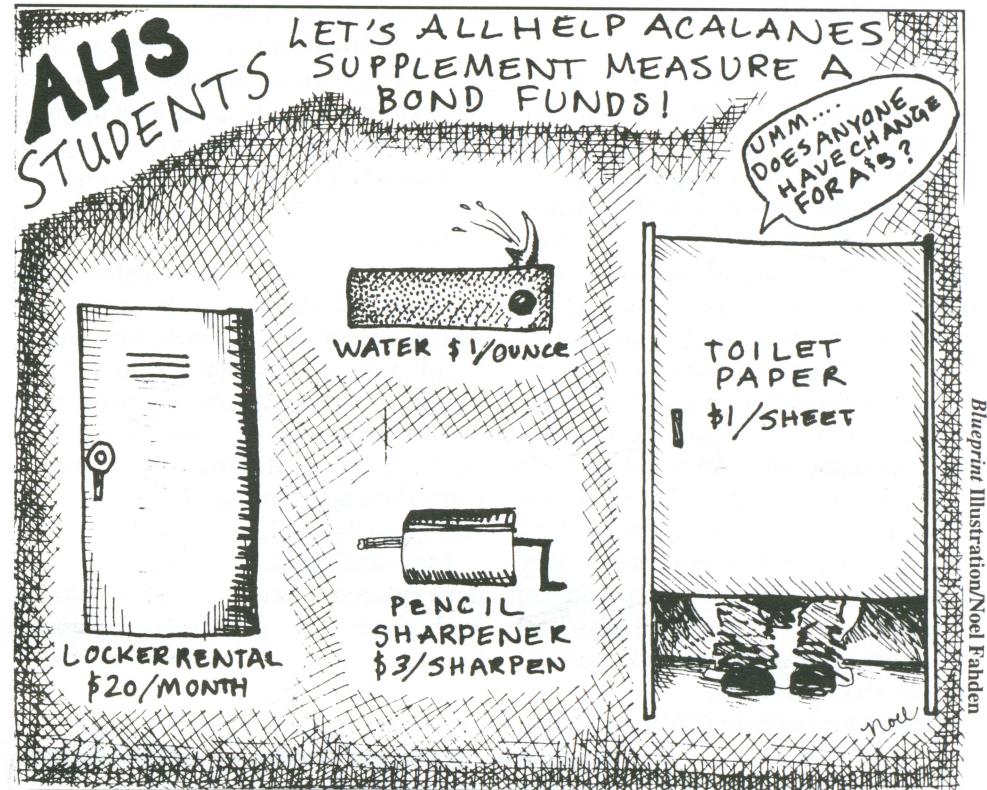 AHS
STUDENTS
LET'S ALL HELP ACALANES
SUPPLEMENT MEASURE A
BOND FUNDS!
UMM....
DOES ANYONE
HAVE CHANGE
FOR A $5?
WATER $1/OUNCE
TOILET
PAPER
$1/SHEET
LOCKER RENTAL
$20/MONTH
PENCIL
SHARPENER
$3/SHARPEN
Noel
Blueprint Illustration/Noel Fahden